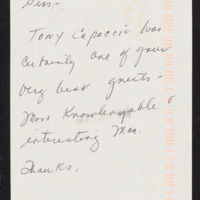 Sirs-
Tony Capaccio was
certainly one of your
very best guests-
Most Knowledgable &
interesting Man.
Thanks.